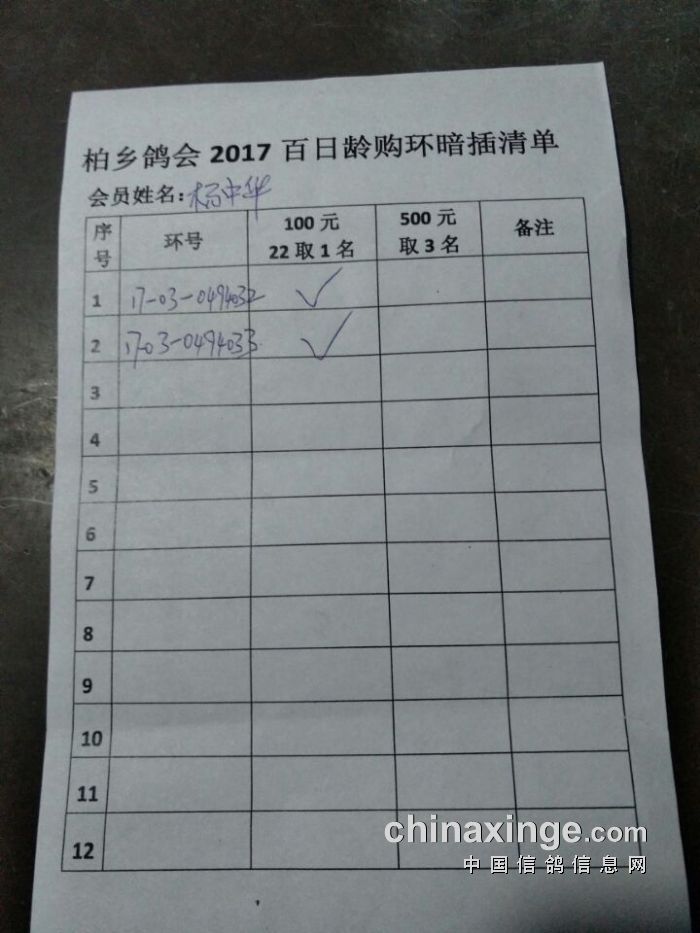 柏乡鸽会2017百日龄购环暗插清单
会员姓名：杨中华
序号 环号 100元 22取1名 500元 取3名 备注
1 17-03-0494032 ✓
2 1703-0494033 ✓
3
4
5
6
7
8
9
10
11
12
chinaxinge.com
中国信鸽信息网